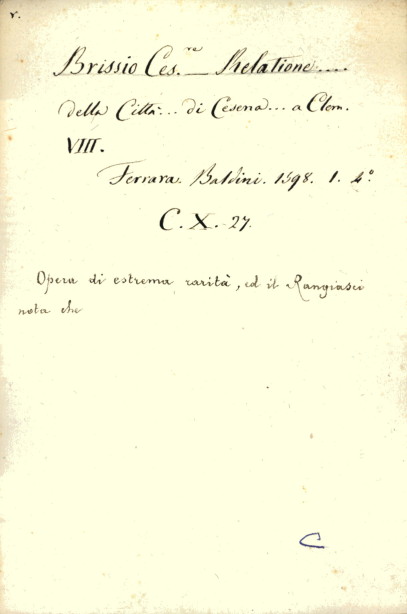 r.
Brissio Ces.re — Relatione....
della Città... di Cesena... a Clem.
VIII.
Ferrara. Baldini. 1598. 1. 4.º
C. X. 27.
Opera di estrema rarità, ed il Rangiasci
nota che
C